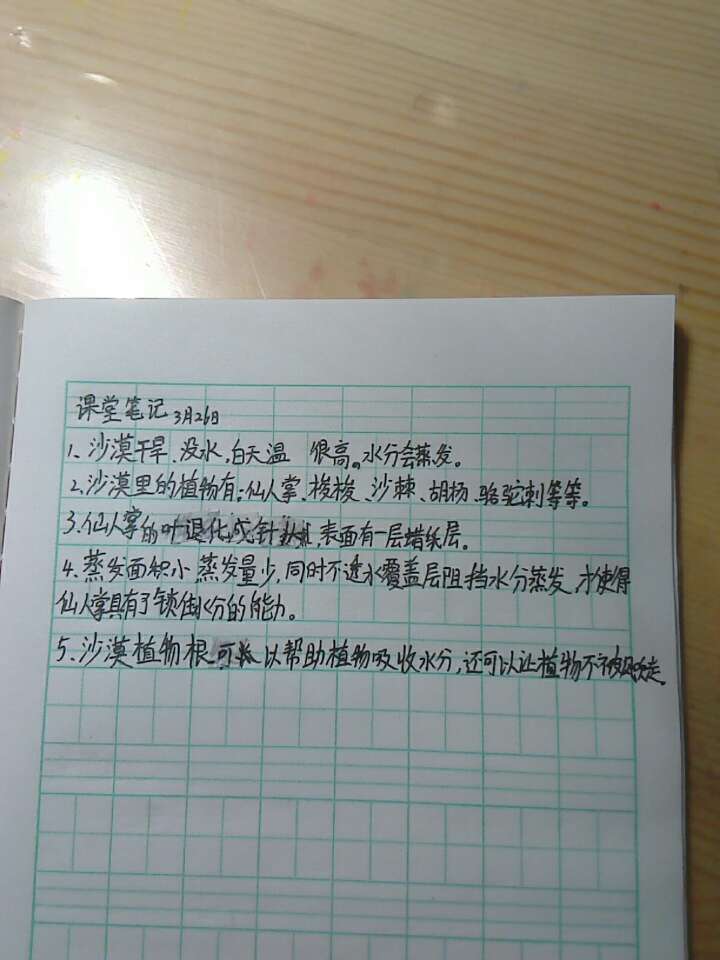 课堂笔记 3月26日
1、沙漠干旱、没水,白天温 很高。水分会蒸发。
2、沙漠里的植物有:仙人掌、梭梭、沙棘、胡杨、骆驼刺等等。
3、仙人掌的叶退化成针状,表面有一层蜡纸层。
4、蒸发面积小 蒸发量少,同时不透水覆盖层阻挡水分蒸发,才使得
仙人掌具有了锁住水分的能力。
5、沙漠植物根 可 以帮助植物吸收水分,还可以让植物不被风吹走。